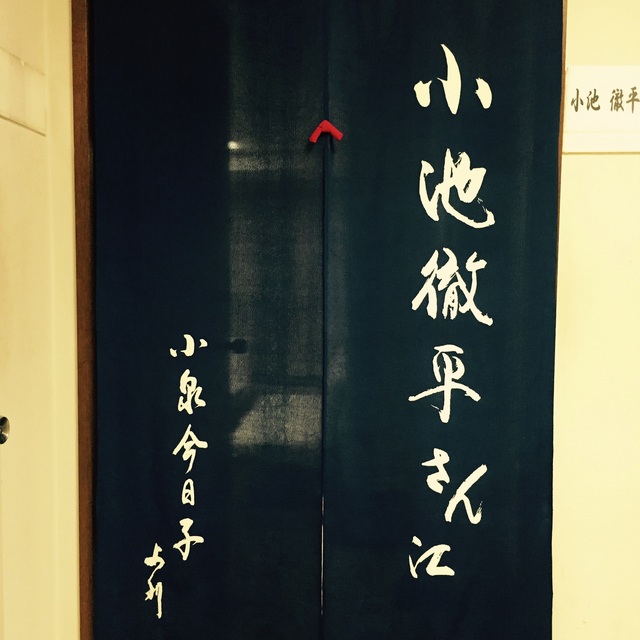 小池徹平さん江
小泉今日子
より
小池 徹平